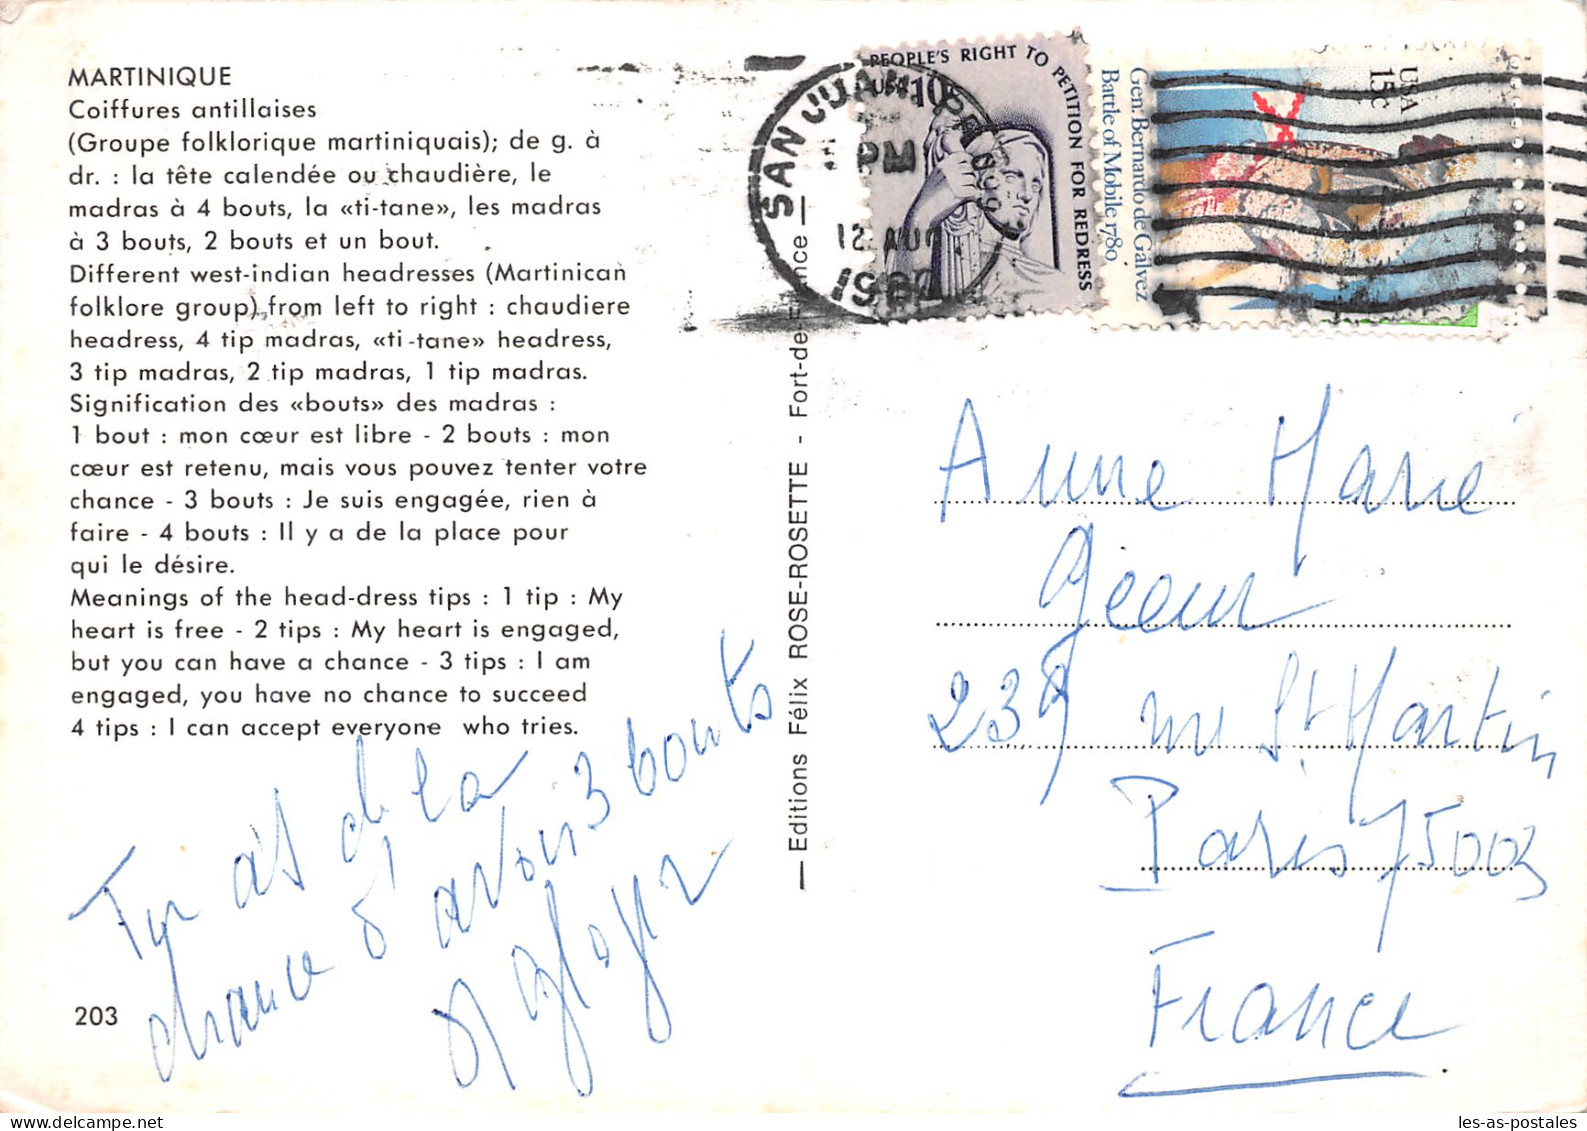 MARTINIQUE
Coiffures antillaises
(Groupe folklorique martiniquais); de g. à
dr. : la tête calendée ou chaudière, le
madras à 4 bouts, la «ti-tane», les madras
à 3 bouts, 2 bouts et un bout.
Different west-indian headresses (Martinican
folklore group), from left to right : chaudiere
headress, 4 tip madras, «ti-tane» headress,
3 tip madras, 2 tip madras, 1 tip madras.
Signification des «bouts» des madras :
1 bout : mon cœur est libre - 2 bouts : mon
cœur est retenu, mais vous pouvez tenter votre
chance - 3 bouts : Je suis engagée, rien à
faire - 4 bouts : Il y a de la place pour
qui le désire.
Meanings of the head-dress tips : 1 tip : My
heart is free - 2 tips : My heart is engaged,
but you can have a chance - 3 tips : I am
engaged, you have no chance to succeed
4 tips : I can accept everyone who tries.
Tu as de la
chance d'avoir 3 bouts
203
Editions Félix ROSE-ROSETTE - Fort-de-France
SAN JUAN
PM
12 AUG
PEOPLE'S RIGHT TO PETITION FOR REDRESS
USA 10c
Gen. Bernardo de Gálvez
Battle of Mobile 1780
USA
15c
Anne Marie
239 rue St Martin
Paris 75003
France
les-as-postales